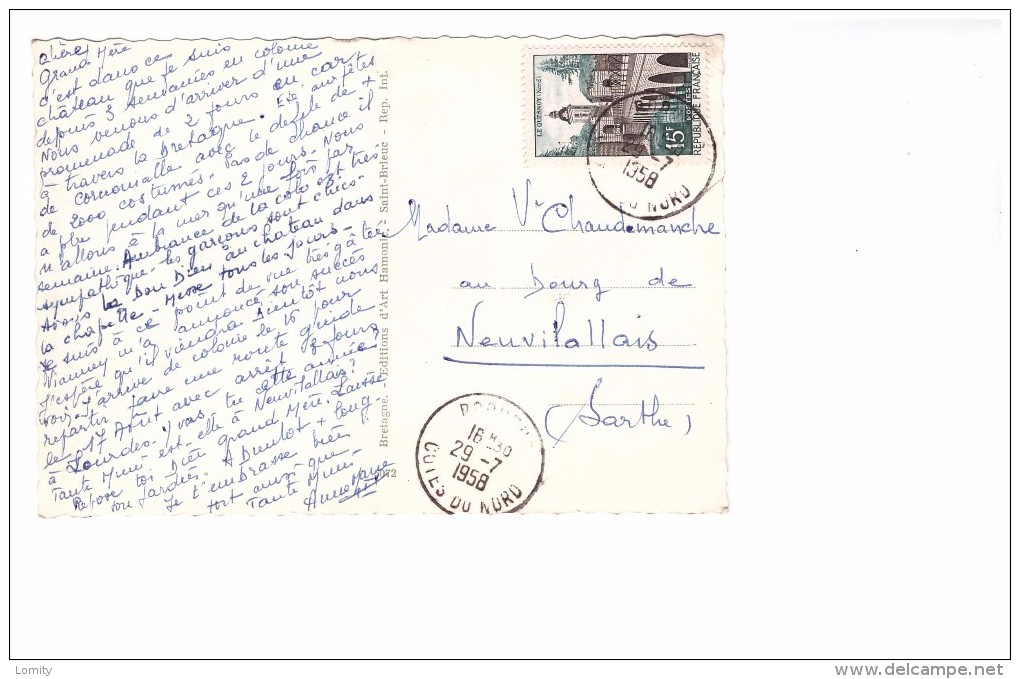 chère
Grand Mère
c'est dans ce
château que je suis
depuis 3 semaines en colonie
Nous venons d'arriver d'une
promenade de 2 jours en car
à travers la bretagne. Eté aux fêtes
de cornouaille avec le défilé de +
de 2000 costumés. Pas de chance il
a plu pendant ces 2 jours. Nous
n'allons à la mer qu'une fois par
semaine. Ambiance de la colo est très
sympathique. les garçons sont chics.
Avons le Bon Dieu au château dans
la chapelle - Messe tous les jours -
Je suis à ce point de vue très gâtée
Vianney m'a annoncé son succès
J'espère qu'il viendra bientôt nous
voir. J'arrive de colonie le 15 pour
repartir faire une route guide
le 17 Août avec arrêt 3 jours
à Lourdes. y vas tu cette année?
Tante Mimi est-elle à Neuvillallais?
Repose toi bien grand Mère. Laisse
ton jardin. A bientôt + long.
Je t'embrasse bien
fort ainsi que
Tante Mimi
Anne Marie
Bretagne. - Editions d'Art Hamonic - Saint-Brieuc - Rep. Int.
LE QUESNOY (Nord)
15F
POSTES
RÉPUBLIQUE FRANÇAISE
1958
DU NORD
Madame Ve Chaudemanche
au Bourg de
Neuvilallais
(Sarthe)
16 H30
29 -7
1958
COTES DU NORD
Lomity
www.delcampe.net